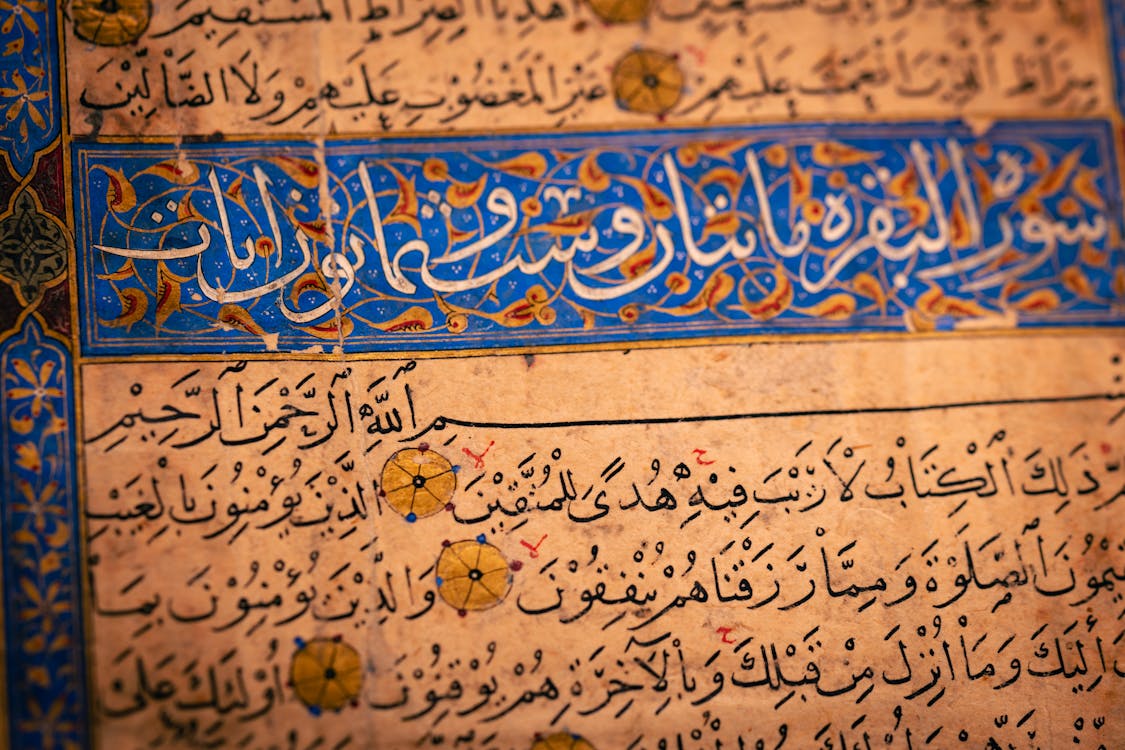 اهْدِنَا الصِّرَاطَ الْمُسْتَقِيمَ
صِرَاطَ الَّذِينَ أَنْعَمْتَ عَلَيْهِمْ غَيْرِ الْمَغْضُوبِ عَلَيْهِمْ وَلَا الضَّالِّينَ
سورة البقرة مايتان وست وثمانون ايات
بِسْمِ اللَّهِ الرَّحْمَنِ الرَّحِيْمِ
ذَلِكَ الْكِتَابُ لَا رَيْبَ فِيْهِ هُدًى لِلْمُتَّقِيْنَ الَّذِيْنَ يُؤْمِنُوْنَ بِالْغَيْبِ
الصَّلَوةَ وَمِمَّا رَزَقْنَاهُمْ يُنْفِقُوْنَ وَالَّذِيْنَ يُؤْمِنُوْنَ بِمَا
إِلَيْكَ وَمَا أُنْزِلَ مِنْ قَبْلِكَ وَبِالْآخِرَةِ هُمْ يُوْقِنُوْنَ أُوْلَئِكَ عَلَىٰ